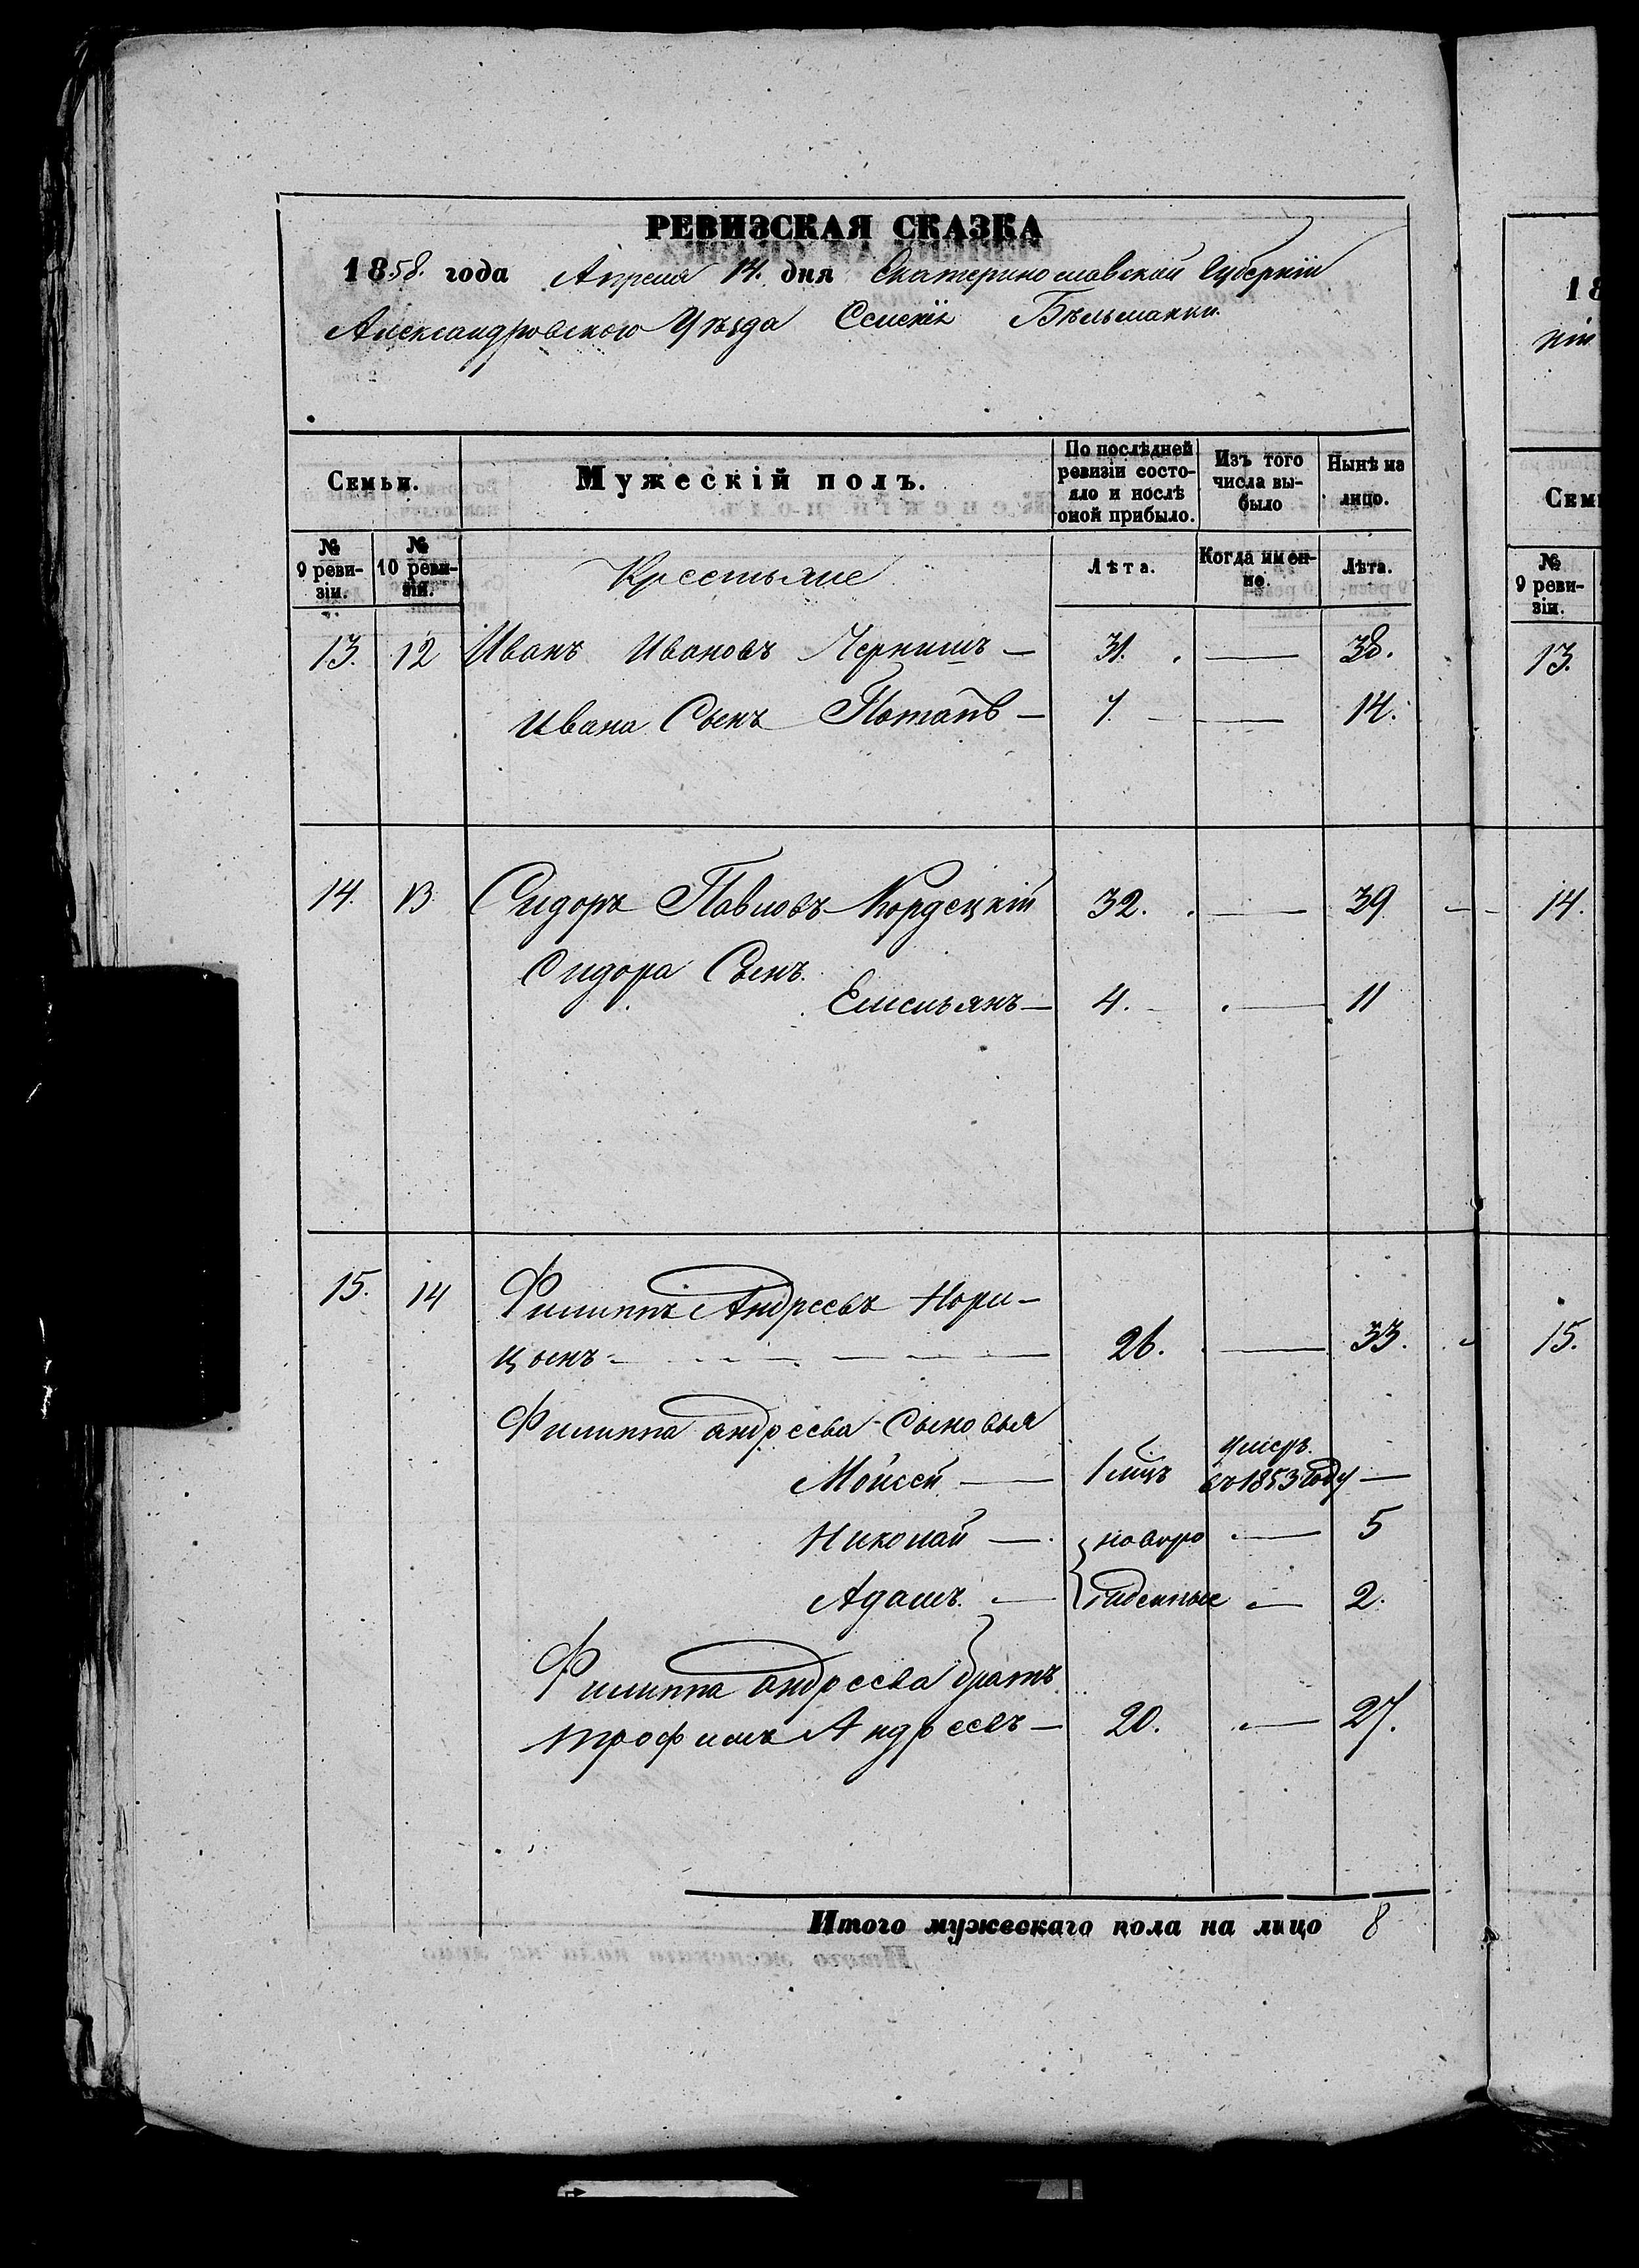 РЕВИЗСКАЯ СКАЗКА
1858. года Апреля 14. дня Екатеринославской Губерніи
Александровского Уѣзда Селенія Бѣльманки.
Семьи. Мужескій полъ. По послѣдней ревизіи состояло и послѣ оной прибыло. Изъ того числа выбыло Нынѣ на лицо.
№ 9 ревизіи. № 10 ревизіи. Крестьяне Лѣта. Когда именно. Лѣта.
13. 12 Иванъ Ивановъ Чернишъ — 31. — 38.
Ивана Сынъ Потапъ — 7. — — 14.
14. 13 Сидоръ Павловъ Кордецкій 32. — 39
Сидора Сынъ
Емельянъ — 4. — — 11
15. 14 Филиппъ Андреевъ Нори-
цынъ — 26. — 33.
Филиппа андреева Сыновья
Мойсей — 1 мцъ умеръ въ 1853 Году —
Николай — новоро — 5
Адамъ — жденные — 2.
Филиппа андреева братъ
трофимъ Андреевъ — 20. — 27.
Итого мужескаго пола на лицо 8
18
ніи
Сем
№ 9 ревизіи.
13.
14.
15.